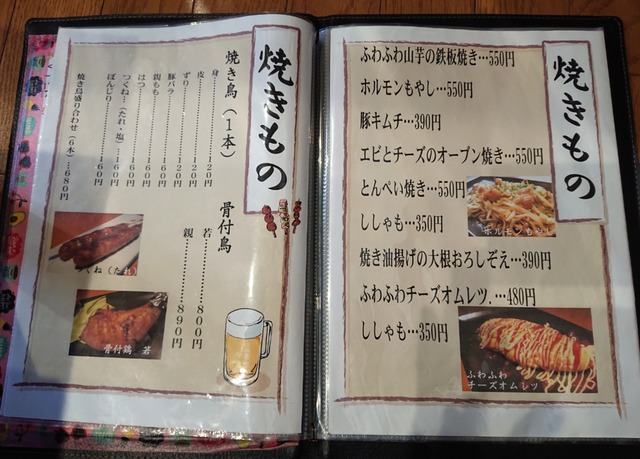 焼きもの
焼き鳥（1本）
身…………120円
皮…………120円
ずり…………120円
豚バラ…………160円
親もも…………160円
はつ…………160円
つくね…（たれ・塩）…160円
ぼんじり…………160円
焼き鳥盛り合わせ（6本）…680円
骨付鳥
若…………800円
親…………890円
つくね（たれ）
骨付鶏 若
焼きもの
ふわふわ山芋の鉄板焼き…550円
ホルモンもやし…550円
豚キムチ…390円
エビとチーズのオーブン焼き…550円
とんぺい焼き…550円
ししゃも…350円
焼き油揚げの大根おろしぞえ…390円
ふわふわチーズオムレツ.…480円
ししゃも…350円
ホルモンもやし
ふわふわ
チーズオムレツ